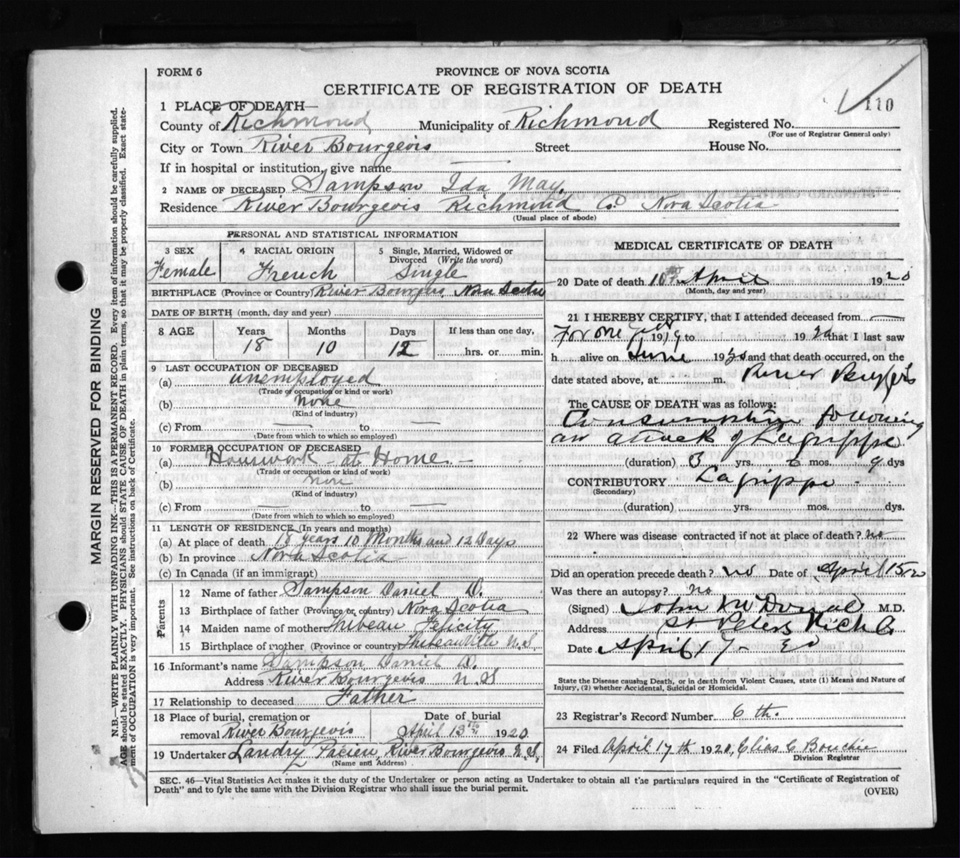 FORM 6
PROVINCE OF NOVA SCOTIA
CERTIFICATE OF REGISTRATION OF DEATH
110
1 PLACE OF DEATH—
County of Richmond Municipality of Richmond Registered No.
(For use of Registrar General only)
City or Town River Bourgeois Street House No.
If in hospital or institution, give name
2 NAME OF DECEASED Sampson Ida May
Residence River Bourgeois Richmond Co. Nova Scotia
(Usual place of abode)
PERSONAL AND STATISTICAL INFORMATION
3 SEX 4 RACIAL ORIGIN 5 Single, Married, Widowed or Divorced (Write the word)
Female French Single
BIRTHPLACE (Province or Country) River Bourgeois, Nova Scotia
DATE OF BIRTH (month, day and year)
8 AGE Years Months Days If less than one day,
18 10 12 hrs. or min.
9 LAST OCCUPATION OF DECEASED
(a) unemployed
(Trade of occupation or kind of work)
(b) None
(Kind of industry)
(c) From — to —
(Date from which to which so employed)
10 FORMER OCCUPATION OF DECEASED
(a) Housework at Home
(Trade or occupation or kind of work)
(b) None
(Kind of industry)
(c) From — to —
(Date from which to which so employed)
11 LENGTH OF RESIDENCE (In years and months)
(a) At place of death 18 years 10 Months and 12 Days
(b) In province Nova Scotia
(c) In Canada (if an immigrant)
Parents
12 Name of father Sampson Daniel D.
13 Birthplace of father (Province or country) Nova Scotia
14 Maiden name of mother Thibeau Felicity
15 Birthplace of mother (Province or country) Thibeauville N.S.
16 Informant's name Sampson Daniel D.
Address River Bourgeois N.S
17 Relationship to deceased Father
18 Place of burial, cremation or removal River Bourgeois
Date of burial April 13th 1920
19 Undertaker Landry River Bourgeois N.S.
(Name and Address)
MEDICAL CERTIFICATE OF DEATH
20 Date of death April 1920
(Month, day and year)
21 I HEREBY CERTIFY, that I attended deceased from
19 to 19 that I last saw
h alive on June 19 and that death occurred, on the
date stated above, at m. River
The CAUSE OF DEATH was as follows:
Consumption following
an attack of Lagrippe
(duration) 3 yrs. 6 mos. 9 dys
CONTRIBUTORY Lagrippe
(Secondary)
(duration) yrs. mos. dys.
22 Where was disease contracted if not at place of death? no
Did an operation precede death? no Date of April 15
Was there an autopsy? no
(Signed) John McDonald M.D.
Address St Peters Rich Co.
Date April 17
State the Disease causing Death, or in death from Violent Causes, state (1) Means and Nature of
Injury, (2) whether Accidental, Suicidal or Homicidal.
23 Registrar's Record Number 6th.
24 Filed April 17th 1920, Elias C Bouchie
Division Registrar
SEC. 46—Vital Statistics Act makes it the duty of the Undertaker or person acting as Undertaker to obtain all the particulars required in the "Certificate of Registration of
Death" and to fyle the same with the Division Registrar who shall issue the burial permit.
(OVER)
MARGIN RESERVED FOR BINDING
N.B.—WRITE PLAINLY WITH UNFADING INK—THIS IS A PERMANENT RECORD. Every item of information should be carefully supplied.
AGE should be stated EXACTLY. PHYSICIANS should STATE CAUSE OF DEATH in plain terms, so that it may be properly classified. Exact state-
ment of OCCUPATION is very important. See instructions on back of Certificate.